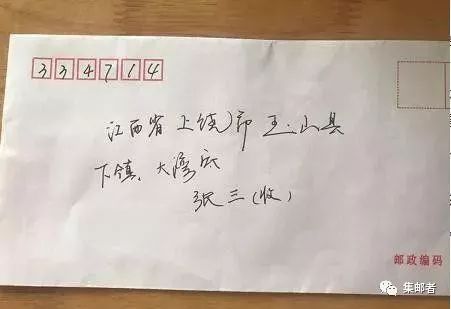 334714
江西省 上饶市 玉山县
下镇、大湾底
张三(收)
邮政编码
集邮者